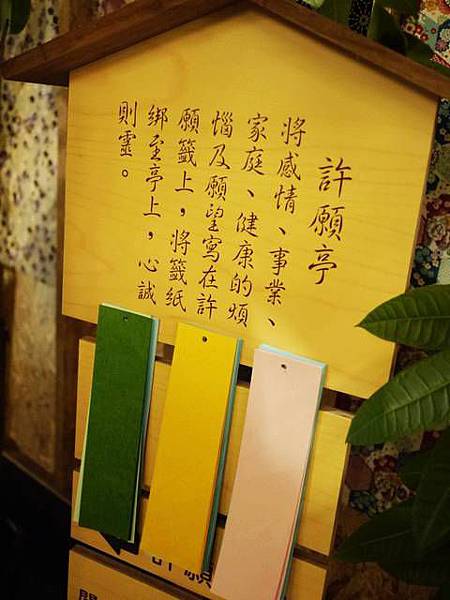 許願亭
將感情、事業、
家庭、健康的煩
惱及願望寫在許
願籤上，將籤紙
綁至亭上，心誠
則靈。
許願